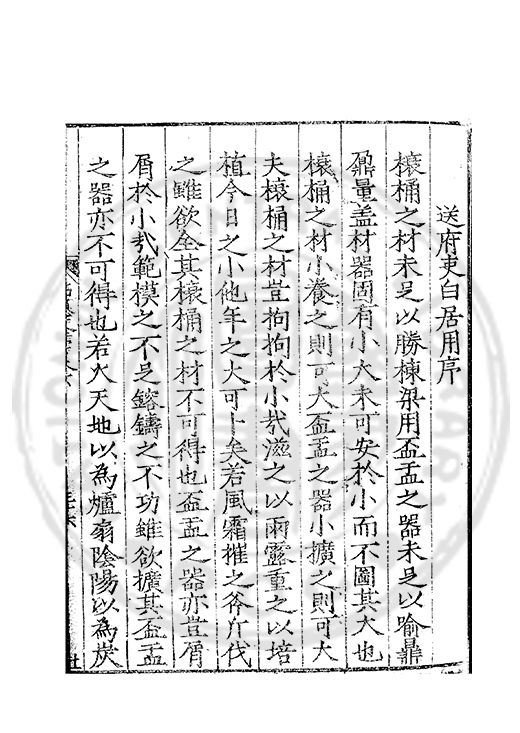 送府吏白居用序
榱桷之材未足以勝棟梁用盃盂之器未足以喻鼎
鼐量盖材器固有小大未可安於小而不圖其大也
榱桷之材小養之則可大盃盂之器小擴之則可大
夫榱桷之材豈拘拘於小㢤滋之以雨露重之以培
植今日之小他年之大可卜矣若風霜摧之斧斤伐
之雖欲全其榱桷之材不可得也盃盂之器亦豈屑
屑於小㢤範模之不足鎔鑄之不功雖欲擴其盃盂
之器亦不可得也若夫天地以為爐扇陰陽以為炭